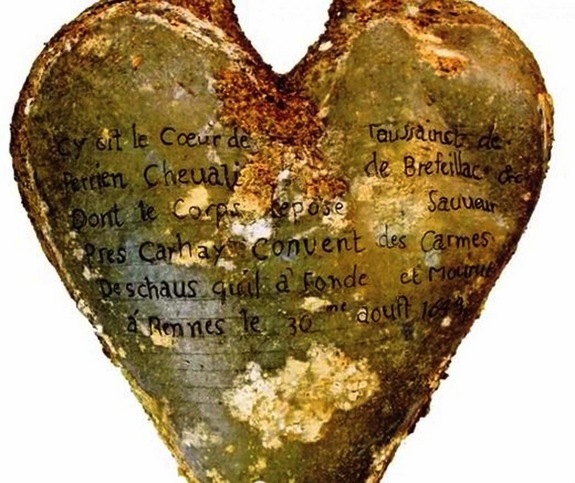 Cy Git le Cœur de Toussainct de
Perrien Chevali de Brefeillac &c
Dont le Corps Repose Sauueur
Pres Carhay Convent des Carmes
Deschaus quil a fonde et Mourut
á Rennes le 30me aouſt